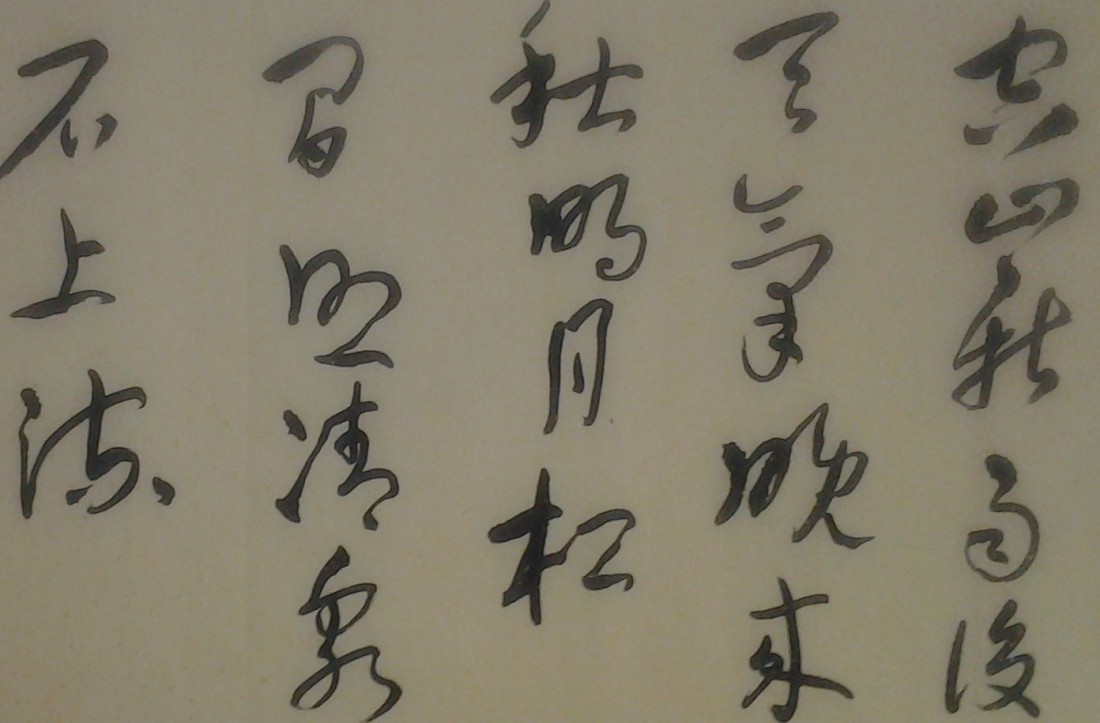 空山新雨後
天氣晚來
秋明月松
間照清泉
石上流